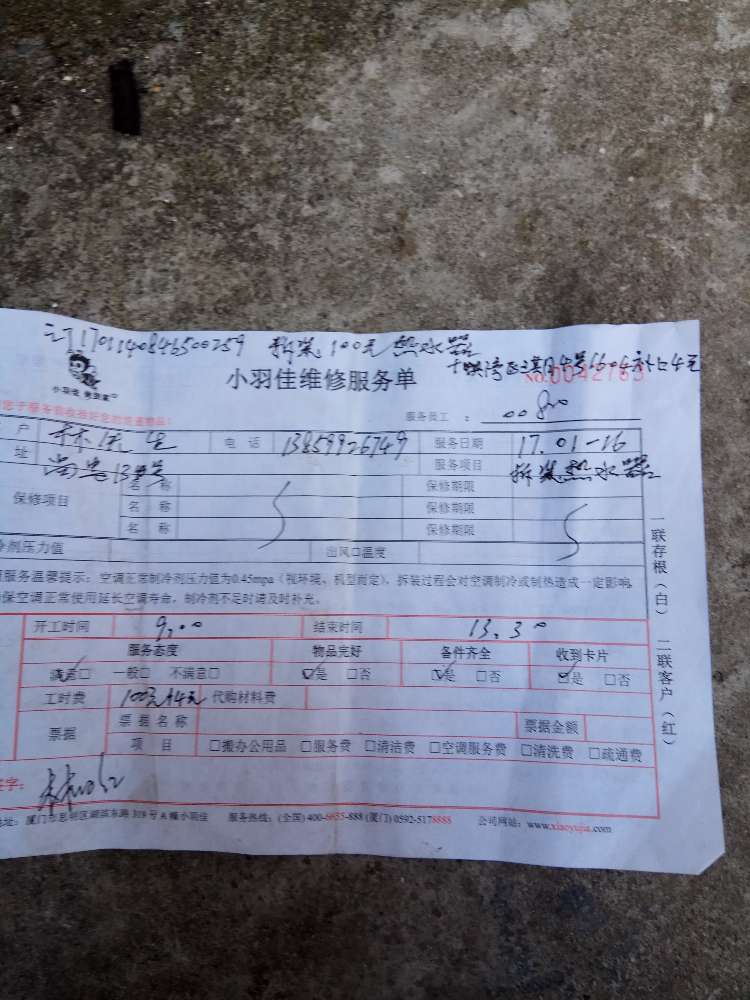 订1701140846500259 拆装100元热水器
小羽佳 家政®
小羽佳维修服务单
NO.0042763
服务员工：0080
户 林先生 电话 13859926749 服务日期 17.01-16
址 服务项目 拆装热水器
保修项目 名称 保修期限
名称 保修期限
名称 保修期限
冷剂压力值 出风口温度
服务温馨提示：空调正常制冷剂压力值为0.45mpa（视环境、机型而定），拆装过程会对空调制冷或制热造成一定影响，
保空调正常使用延长空调寿命，制冷剂不足时请及时补充。
开工时间 9.00 结束时间 13.30
服务态度 物品完好 备件齐全 收到卡片
满意☑ 一般□ 不满意□ ☑是 □否 ☑是 □否 ☑是 □否
工时费 100元 代购材料费
票据 票据名称 票据金额
项目 □搬办公用品 □服务费 □清洁费 □空调服务费 □清洗费 □疏通费
签字：
地址：厦门市思明区湖滨东路319号A幢小羽佳 服务热线：(全国) 400-6655-888 (厦门) 0592-5178888 公司网站：www.xiaoyujia.com
一联存根（白） 二联客户（红）